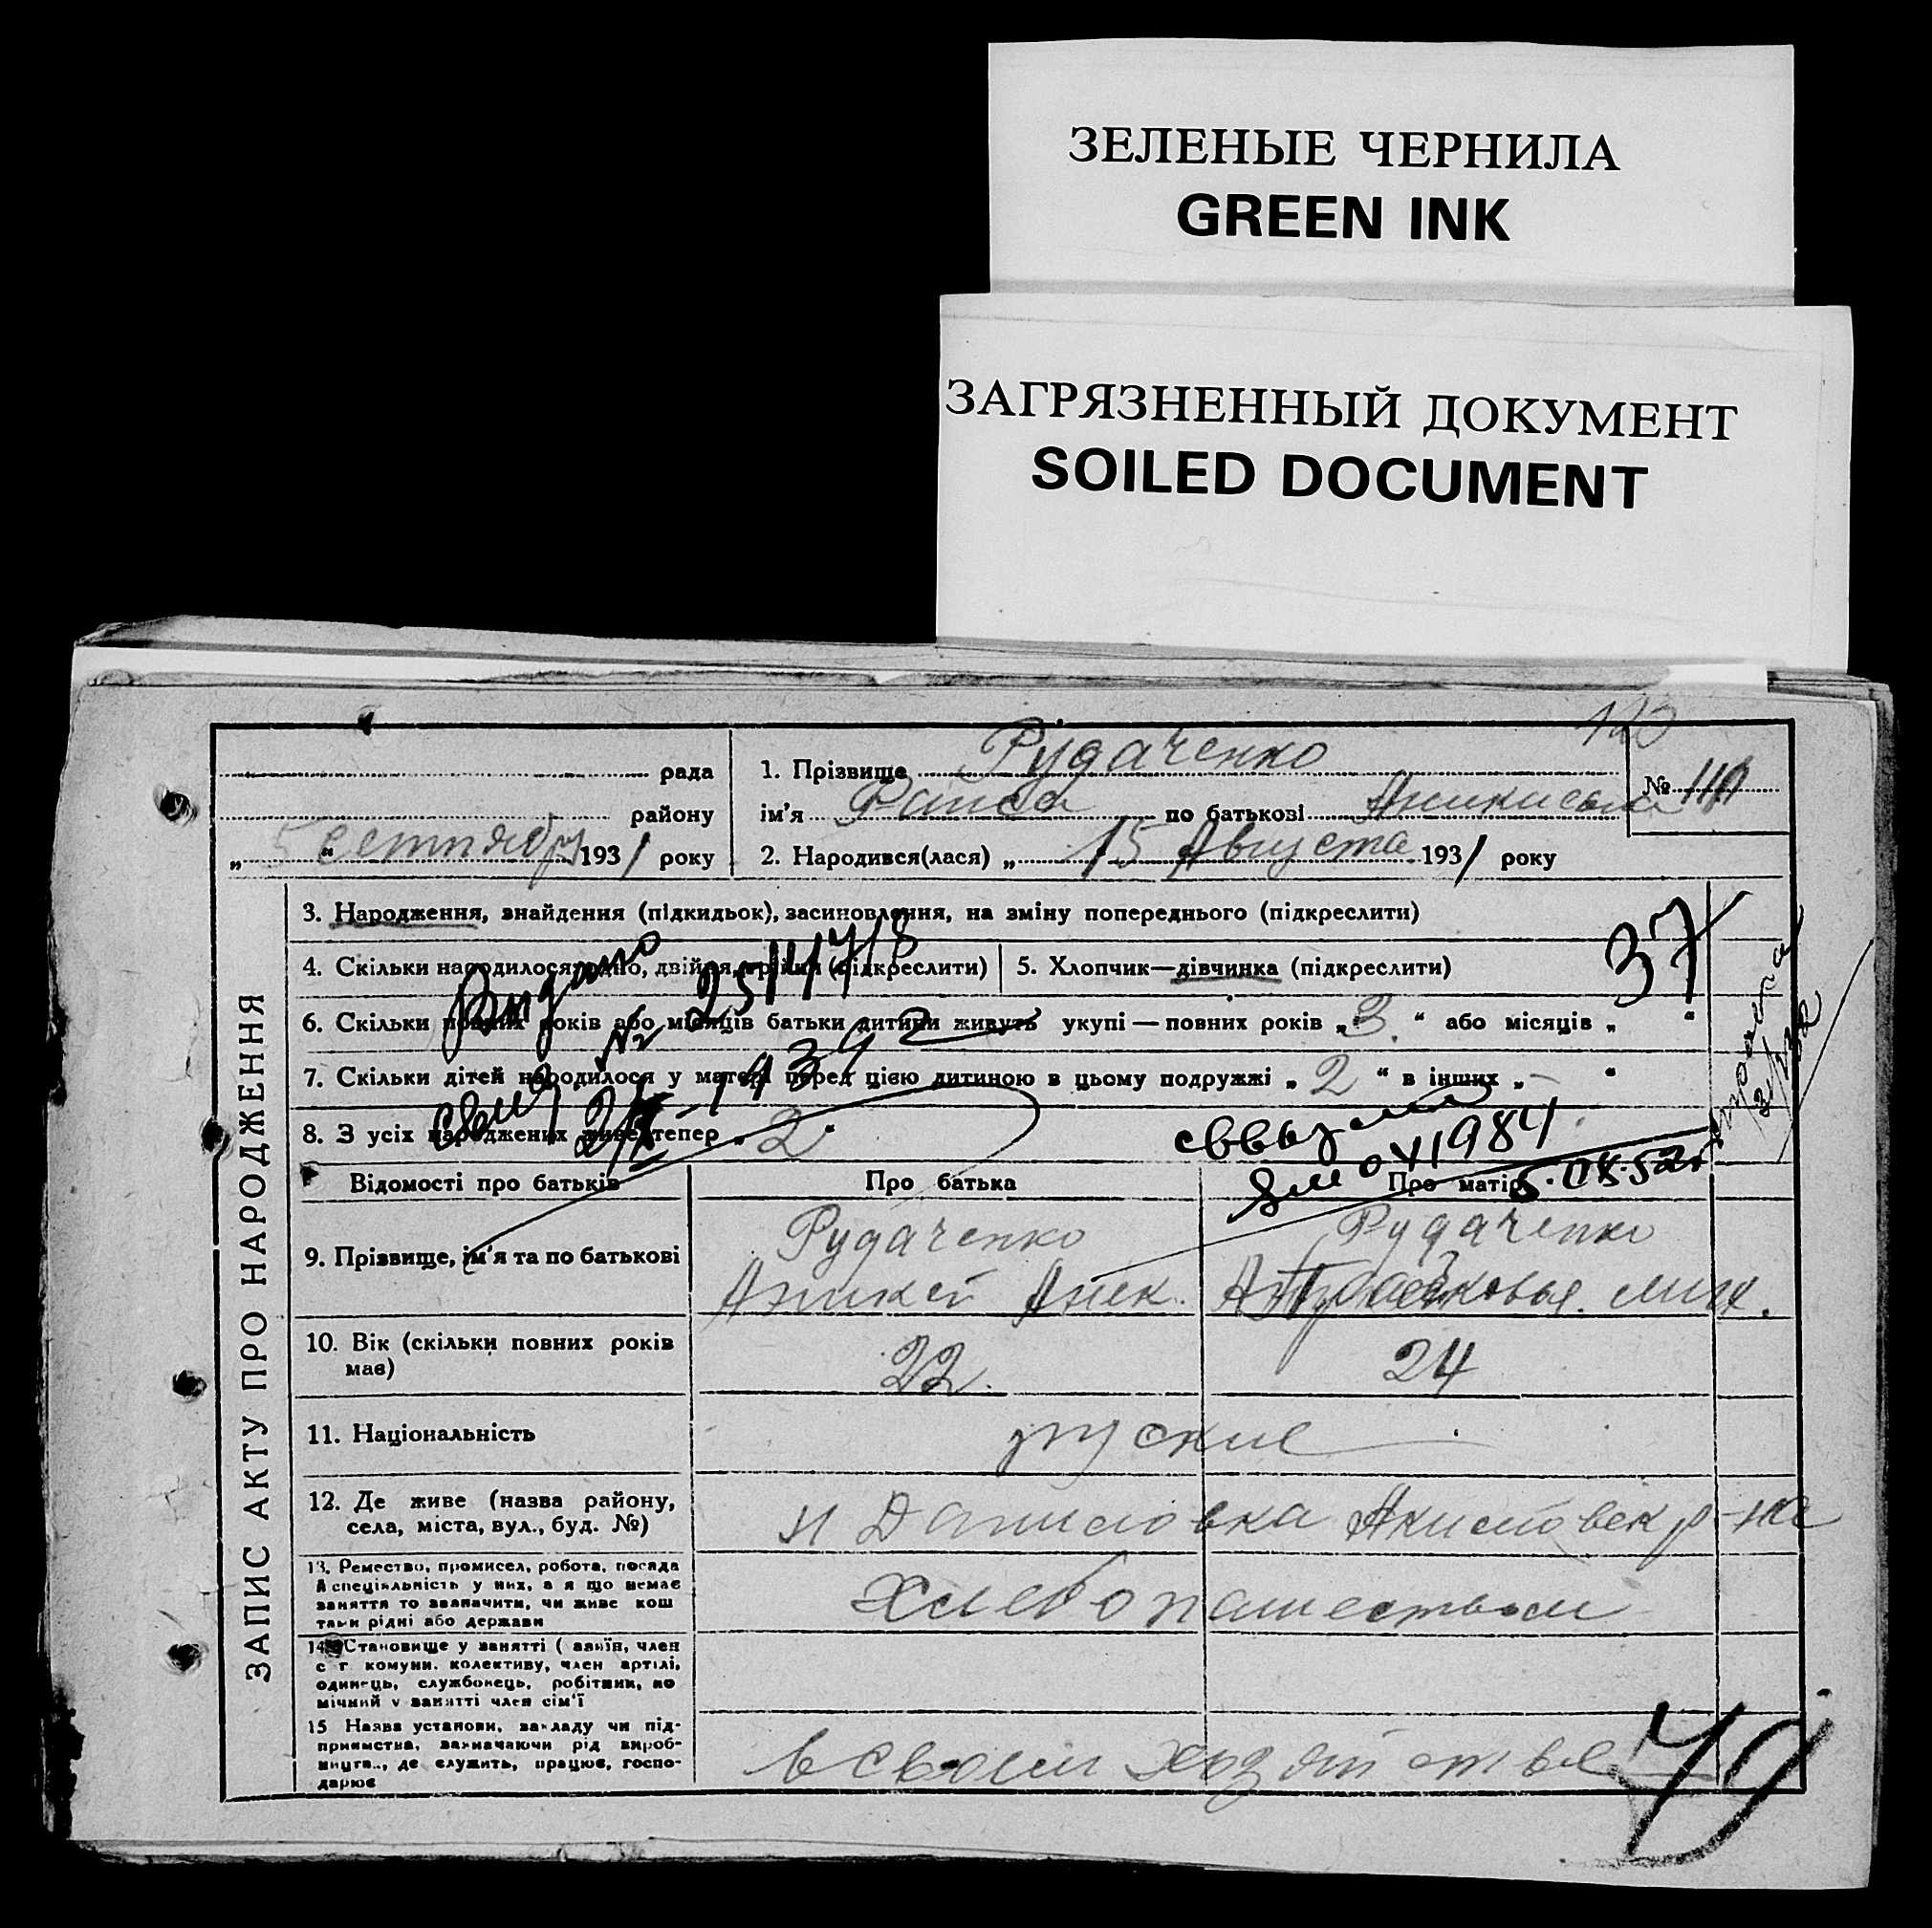 ЗЕЛЕНЫЕ ЧЕРНИЛА
GREEN INK
ЗАГРЯЗНЕННЫЙ ДОКУМЕНТ
SOILED DOCUMENT
ЗАПИС АКТУ ПРО НАРОДЖЕННЯ
рада
району
„5“ сентября 1931 року
1. Прізвище Рудаченко
ім'я Раиса по батькові
2. Народився(лася) „15 Августа 1931 року
№
3. Народження, знайдення (підкидьок), засиновлення, на зміну попереднього (підкреслити)
4. Скільки народилося: одно, двійня, трійня (підкреслити)
5. Хлопчик—дівчинка (підкреслити)
37
6. Скільки повних років або місяців батьки дитини живуть укупі — повних років „3“ або місяців „ “
7. Скільки дітей народилося у матері перед цією дитиною в цьому подружжі „2“ в інших „-“
8. З усіх народжених живе тепер „2“
Видано
№ 251478
1939
Відомості про батьків
Про батька
Про матір
9. Прізвище, ім'я та по батькові
Рудаченко
Аникей
Рудаченко
10. Вік (скільки повних років має)
22
24
11. Національність
руские
12. Де живе (назва району, села, міста, вул., буд. №)
Даниловка р-на
13. Ремество, промисел, робота, посада
й спеціяльність у них, а я що немає
заняття то зазначити, чи живе кош
тами рідні або держави
Хлебопашеством
14. Становище у занятті ( азяїн, член
с г. комуни, колективу, член артілі,
одинець, службовець, робітник, по
мічний у занятті член сім'ї
15 Назва установи, закладу чи під-
приємства, зазначаючи рід вироб-
ництв.., де служить, працює, госпо-
дарює
в своем хозяйстве